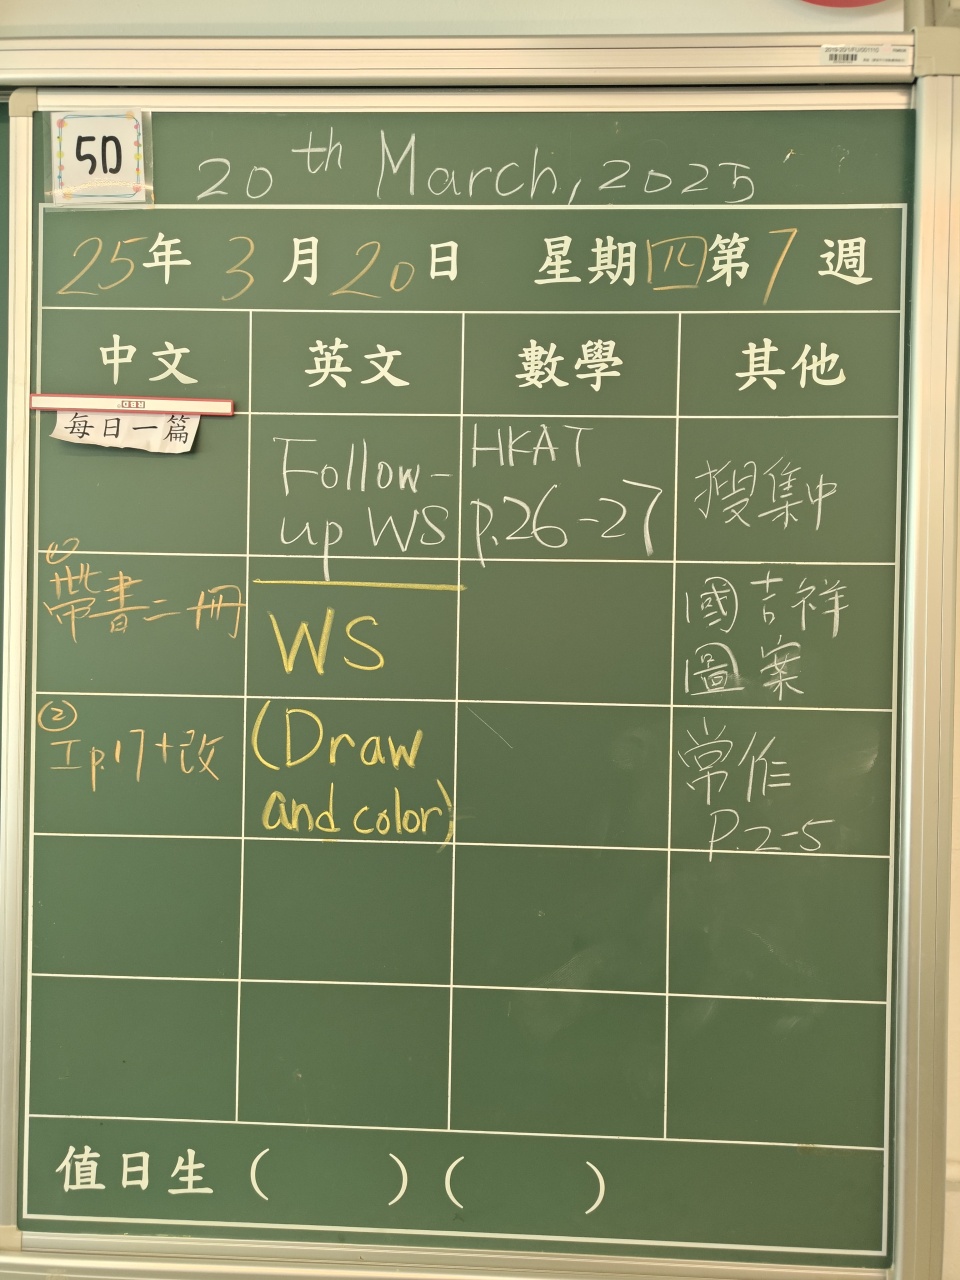 5D
20th March, 2025
25年 3月20日 星期四第7週
中文
英文
數學
其他
每日一篇
① 帶書二冊
② 工p.17+改
Follow-
up WS
WS
(Draw
and color)
HKAT
p.26-27
搜集中
國吉祥
圖案
常作
P.2-5
值日生 ( ) ( )